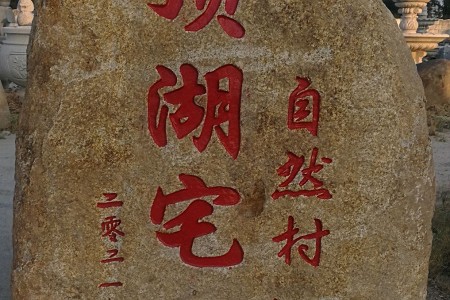 自然村
湖宅
二零二一